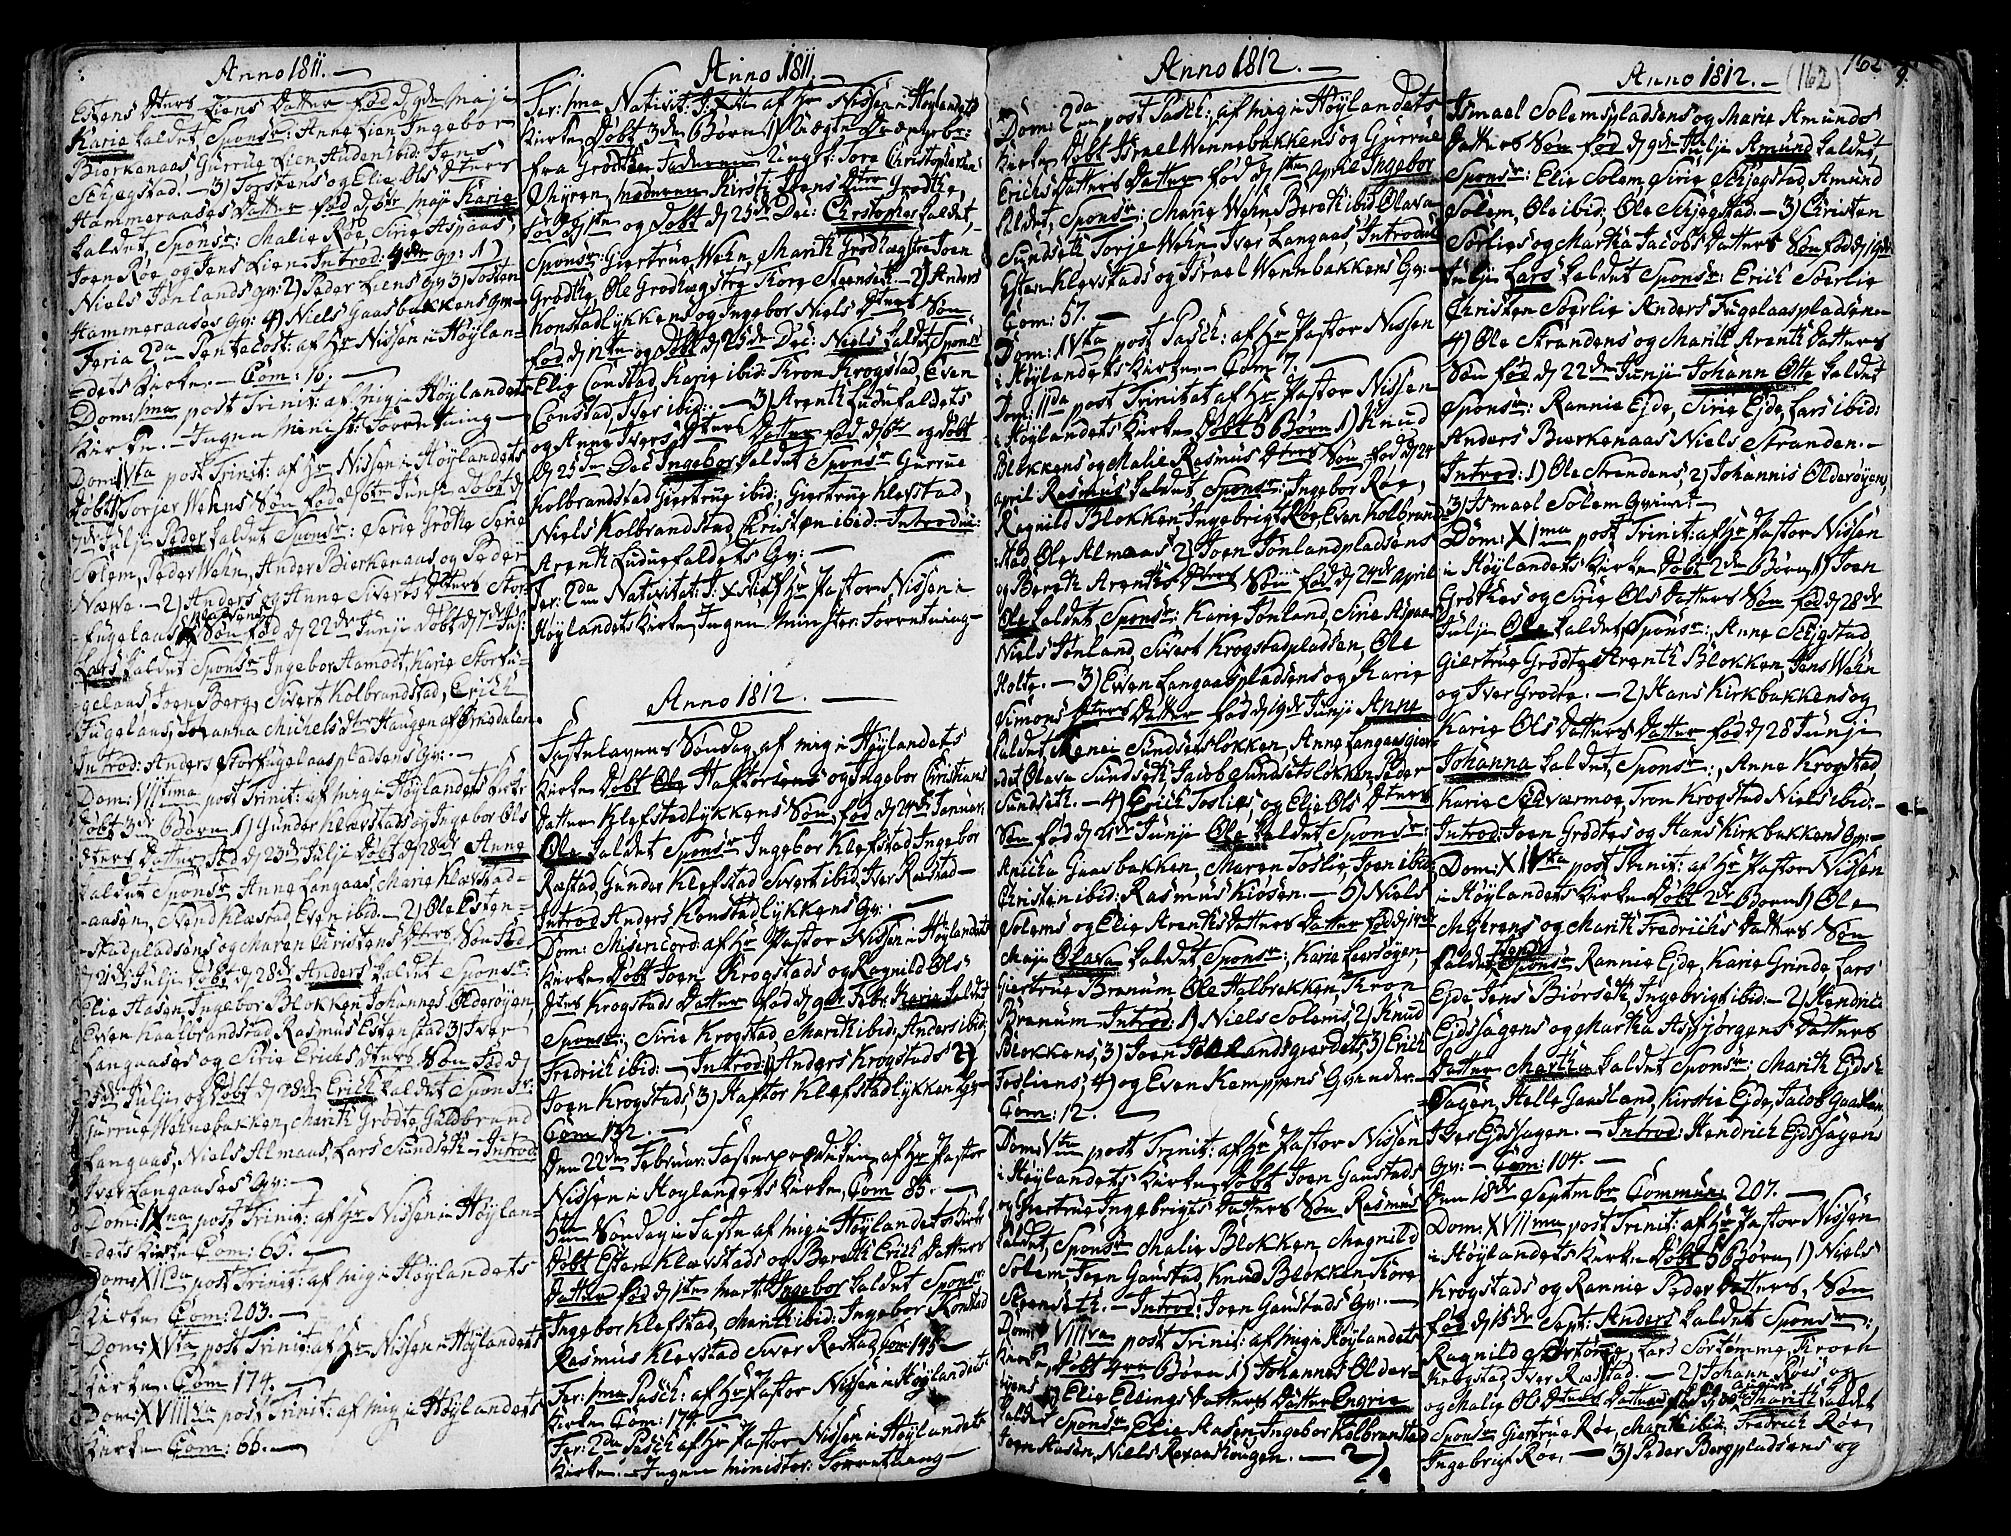 Anno 1811. —
Estens Dtters Liens Datter fød d 9de Maji
Karie kaldet Spons: Anne Lien Ingebor
Bierkenaas Gurrue Lien Auden ibid: Jens
Schjegstad. — 3) Torstens og Elie Ols Dtters
Hammeraases Datter fød d 6te Maji Karie
kaldet, Spons: Malie Røe, Sirie Aspaas,
Joen Røe, og Jens Lien. Introd: Gv: 1)
Niels Tønlands gv: 2) Peder Liens Gv 3) Tosten
Hammeraases Gv: 4) Niels Gaasbakkens Gv —
Feria 2da Pentacost: af Hr Nissen i Høylan-
=dets Kirke. — Com: 16. —
Dom: 1ma post Trinit: af mig i Høylandets
Kirke. — Ingen Minist: Forretning —
Dom: IVta post Trinit: af Hr Nissen i Høylandets
Døbt 1) Torjer Wehns Søn fød d 6te Junji Døbt d
7de Julji Peder kaldet Spons: Serie Grøtte Serie
Solem, Peder Wehn, Ander Bierkenaas og Peder
Næwe — 2) Anders og Anne Siverts Dtters Stor
=fugelaas Søn fød d 22de Junji Døbt d 7de Jul:
Lars kaldet Sponsr Ingebor Aamodt, Karie Storfu-
gelaas Joen Berg, Sivert Kolbrandstad, Erich
Fugelaas, Johanna Michelsdtr Haugen af Ørnsdalen.
Introd: Anders Storfugelaaspladsens Gv: —
Dom: VIItima post Trinit: af mig i Høylandets Kirke
Døbt 3de Børn 1) Gunder Klævstads og Ingebor Ols
Dtters Datter fød d 23de Julji Døbt d 28de Anne
kaldet Sponsr Anne Langaas, Marie Klævstad-
-aasen, Nend Klæstad, Even ibid — 2) Ole Esten-
-stadpladsens og Maren Christens Dtters Søn fød
d 21de Julji Døbt d 28de Anders kaldet Sponsr:
Elie Hasen, Ingebor Blokken, Johannes Olderøyen,
Even Kaalbrandstad, Rasmus Estenstad 3) Iver
Langaases og Sirie Erichs Dtters Søn fød d
Julji og Døbt d 28de Erich kaldet Sponsr:
Gurrue Wehnebakken, Marith Grødte, Guldbrand
Langaas, Niels Almaas, Lars Sundseth — Introd:
Iver Langaases Gv: —
Dom: IXna post Trinit: af Hr Nissen i Høylan-
=dets Kirke Com: 65. —
Dom: XIIda post Trinit: af mig i Høylandets
Kirke Com: 203. —
Dom: XVta post Trinit: af Hr Nissen i Høylandets
Kirke. Com 174. —
Dom: XVIIIva post Trinit: af mig i Høylandets
Kirke Com: 66. —
Anno 1811. —
Fer: 1ma Nativit: J: Xti af Hr Nissen i Høylandets
Kirke Døbt 3de Børn 1)
fra Grødthe Faderen Ungk: Tore Christophersen
Øyren, Moderen Kirsti Jens Dtter Grødthe,
fød d og Døbt d 25de Dec: Christopher kaldet,
Sponsr: Giertrue Wehn, Marith Grødthægstre Joen
Grødthe, Ole Grødhægstre Tore Steenseth — 2) Anders
Konstadlykkens og Ingebor Niels Dtters Søn
fød d 12te og Døbt d 25de Dec: Niels kaldt Sponsr
Elie Constad, Karie ibid: Tron Krogstad, Even
Constad, Iver ibid: — 3) Arenth Luduefaldets
og Anne Ivers Dtters Datter fød d 6te og Døbt
d 25de Dec Ingebor kaldet Sponsr Gurrue
Kolbrandstad, Giertrue ibid: Giertrue Klefstad,
Niels Kolbrandstad, Christen ibid: — Introdu:
Arenth Luduefaldets Gv: —
Fer: 2da Nativitat: J: Xti af Hr Pastor Nissen i
Høylandets Kirke Ingen Minister: Forretning —
Anno 1812. —
Fastelavens Søndag af mig i Høylandets
Kirke Døbt Ole Haftorsens og Ingebor Christians
Datter Klefstadlykkens Søn, fød d 24de Januar:
Ole kaldet Sponsr Ingebor Klefstad Ingebor
Ræstad, Gunder Klefstad Sivert ibid, Iver Ræstad —
Introd Anders Konstadlykkens Gv: —
Dom: Misericord: af Hr Pastor Nissen i Høylandets
Kirke Døbt Joen Krogstads og Ragnild Ols
Dtters Krogstads Datter fød d 9de Febr: Karie kaldet
Sponsr: Sirie Krogstad, Marith ibid, Anders ibid,
Fredrich ibid: — Introd: 1) Anders Krogstads 2)
Joen Krogstads, 3) Haftor Klefstadlykkens Gv —
Com: 132. —
Den 22de Februar: Fasteprædiken af Hr Pastor
Nissen i Høylandets Kirke Com 85. —
5te Søndag i Faste af mig i Høylandets Kirk
Døbt Esten Klævstads og Bereth Erich Datters
Datter fød d 1ste Mart: Ingebor kaldet Sponsr
Ingebor Klefstad, Marith ibid: Ingebor Konstad
Rasmus Klevstad Siver Restad, Com 195 —
Fer: 1ma Pasch: af Hr Pastor Nissen i Høylandets
Kirke Com: 174. —
Fer: 2da Pasch af Hr Pastor Nissen i Høylandets
Kirke. — Ingen Minister: Forretning —
Anno 1812. —
Dom: 2da post Pasch: af mig i Høylandets
Kirke Døbt Israel Wennebakkens og Gurrue
Erichs Datters Datter fød d 1ste April Ingebor
kaldet, Sponsr: Marie Wehn Bereth ibid Olava
Sundseth Torje Wehn Iver Langaas, Introdu:
Esten Klevstads og Israel Wennbakkens Gv: —
Com: 57. —
Dom: IVta post Pasch: af Hr Pastor Nissen
i Høylandets Kirke — Com 7. —
Dom: 11da post Trinitat af Hr Pastor Nissen
i Høylandets Kirke Døbt 5 Børn 1) Knud
Blokkens og Malie Rasmus Dtters Søn fød d 24
April Rasmus kaldet, Sponsr: Ingebor Røe,
Ragnild Blokken Ingebrigt Røe, Even Kolbrand
stad, Ole Almaas 2) Joen Tønlandpladsens
og Bereth Arenthes Dtters Søn fød d 24de April
Ole kaldet Sponsr: Karie Tønland, Sirie Aspaas
Niels Tønland, Sivert Krogstadpladsen, Ole
Holte. — 3) Ewen Langaaspladsens og Karie
Simons Dtters Datter fød d 19de Junji Anne
kaldet, Renei Sundsetsløkken, Anne Langaasgier-
det Olava Sundseth Jacob Sundsetsløkken Peder
Sundseth. — 4) Erich Toslies, og Elie Ols Dtters
Søn fød d 21de Junji Ole kaldet Sponsr:
Anicha Gaasbakken, Maren Toslie, Joen ibid
Christen ibid: Rasmus Kiøsen. — 5) Niels
Solems og Elie Arenths Datters Datter fød d
Maji Olava kaldet Sponsr:, Karie Leersøyen,
Giertrue Branum Ole Halbrekken, Tron
Branum — Introd: 1) Niels Solems, 2) Knud
Blokkens, 3) Joen Tønlandsgierdets, 3) Erich
Tosliens, 4) og Even Kamppens Gvender. —
Com: 12. —
Dom: Vta post Trinit: af Hr Pastor Nissen
i Høylandets Kirke Døbt Joen Gaustads
og Giertrue Ingebrigts Datters Søn Rasmus
kaldet, Sponsr Malie Blokken, Magnild
Solem Joen Gaustad, Knud Blokken Tore
Steenseth. — Introd: Joen Gaustads Gv: —
Dom: VIIIva post Trinit: af mig i Høylandets
Kirke, Døbt 4re Børn 1) Johannes Older-
øyens og Elie Ellings Datters Datter Engrie
kaldet Sponsr Elie Aasen, Ingebor Kolbranstad
Joen Aasen, Niels Røeaashougen. — 2)
162
(162)
Anno 1812. —
Ismael Solemspladsens og Marie Amunds
Datters Søn fød d 9de Julji Amund kaldet
Sponsr: Elie Solem, Sirie Schjegstad, Amund
Solem, Ole ibid: Ole Schjegstad. — 3) Christen
Sørlies og Martha Jacobs Datters Søn fød d 19de
Julji Lars kaldet Sponsr: Erich Soerlie
Christen Soerlie Anders Fugelaaspladsen —
4) Ole Strandens og Marith Arenth Datters
Søn fød d 22de Junji Johann Otte kaldet
Sponsr: Rannie Ejde, Sirie Ejde, Lars ibid:
Anders Bierkenaas Niels Stranden. —
Introd: 1) Ole Strandens, 2) Johannis Olderøyen,
3) Ismael Solem Gvinnr: —
Dom: XIma post Trinit: af Hr Pastor Nissen
i Høylandets Kirke Døbt 2de Børn 1) Joen
Grøthes og Sirie Ols Datters Søn fød d 28de
Julji Ole kaldet, Sponsr:, Anne Schjgstad,
Giertrue Grødte Arenth Blokken, Jens Wehn
og Iver Grødte. — 2) Hans Kirkbakkens og
Karie Ols Datters Datter fød d 28 Junji
Johanna kaldet, Sponsr:, Anne Krogstad
Karie Siæværmoe, Tron Krogstad Niels ibid: —
Introd: Joen Grødtes og Hans Kirkbakkens Gv: —
Dom: XIVta post Trinit: af Hr Pastor Nissen
i Høylandets Kirke Døbt 2de Børn 1) Ole
Myhrens og Marith Fredrichs Datters Søn
kaldet Sponsr Rannie Ejde, Karie Grinde, Lars
Ejde Jens Biørseth, Ingebrigt ibid: — 2) Hendrich
Ejdssagens og Martha Asbjørgens Datters
Datter Martha kaldet Sponsr: Marith Ejds-
Sagen, Helle Gaasland, Kirstie Ejde, Jacob Gaaslan,
Iver Ejdssagen. — Introd: Hendrich Ejdssagens
Gv: — Com: 104. —
Den 18de Septembr Commun: 207. —
Dom: XVIIma post Trinit: af Hr Pastor Nissen
i Høylandets Kirke Døbt 5 Børn 1) Niels
Krogstads og Rannie Peder Datters, Søn
fød d 15de Sept: Anders kaldet Sponsr:,
Ragnild Størtømme, Lars Sørtømme, Tron
Krogstad, Iver Ræstad. — 2) Johann Røes og
og Malie Ols Dtters Datter fød d Marith kaldet
Sponsr Giertrue Røe, Marith ibid: Fredrich Røe,
Ingebrigt Røe, — 3) Peder Bergpladsens og